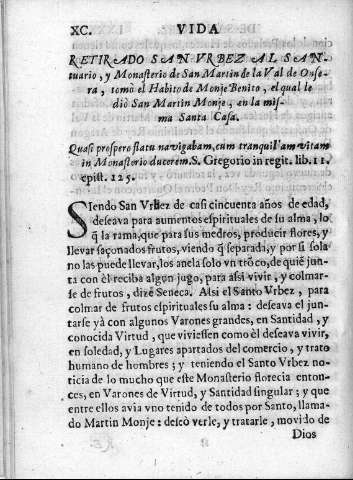 XC. VIDA
RETIRADO SAN VRBEZ AL SAN-
tuario, y Monasterio de San Martin de la Val de Onse-
ra, tomò el Habito de Monje Benito, el qual le
diò San Martin Monje, en la mis-
ma Santa Casa.
Quasi prospero flatu navigabam, cum tranquil'am vitam
in Monasterio ducerem. S. Gregorio in regist. lib. 11.
epist. 125.
SIendo San Vrbez de casi cincuenta años de edad,
deseava para aumentos espirituales de su alma, lo
q̃ la rama, que para sus medros, producir flores, y
llevar saçonados frutos, viendo q̃ separada, y por si sola
no las puede llevar, los anela solo vn trõco, de quiẽ jun-
ta con èl reciba algun jugo, para assi vivir, y colmar-
se de frutos, dize Seneca. Alsi el Santo Vrbez, para
colmar de frutos espirituales su alma: deseava el jun-
tarse yà con algunos Varones grandes, en Santidad, y
conocida Virtud, que viviessen como èl deseava vivir,
en soledad, y Lugares apartados del comercio, y trato
humano de hombres; y teniendo el Santo Vrbez no-
ticia de lo mucho que este Monasterio florecia enton-
ces, en Varones de Virtud, y Santidad singular; y que
entre ellos avia vno tenido de todos por Santo, llama-
do Martin Monje: deseò verle, y tratarle, movido de
Dios